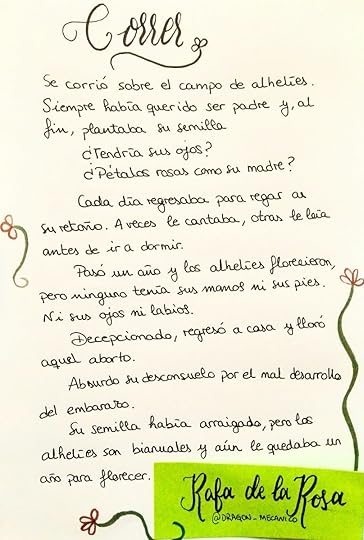 Correr
Se corrió sobre el campo de alhelíes.
Siempre había querido ser padre y, al
fin, plantaba su semilla
¿Tendría sus ojos?
¿Pétalos rosas como su madre?
Cada día regresaba para regar a
su retoño. A veces le cantaba, otras le leía
antes de ir a dormir.
Pasó un año y los alhelíes florecieron,
pero ninguno tenía sus manos ni sus pies.
Ni sus ojos ni labios.
Decepcionado, regresó a casa y lloró
aquel aborto.
Absurdo su desconsuelo por el mal desarrollo
del embarazo.
Su semilla había arraigado, pero los
alhelíes son bianuales y aún le quedaba un
año para florecer.
Rafa de la Rosa
@DRAGON_MECANICO